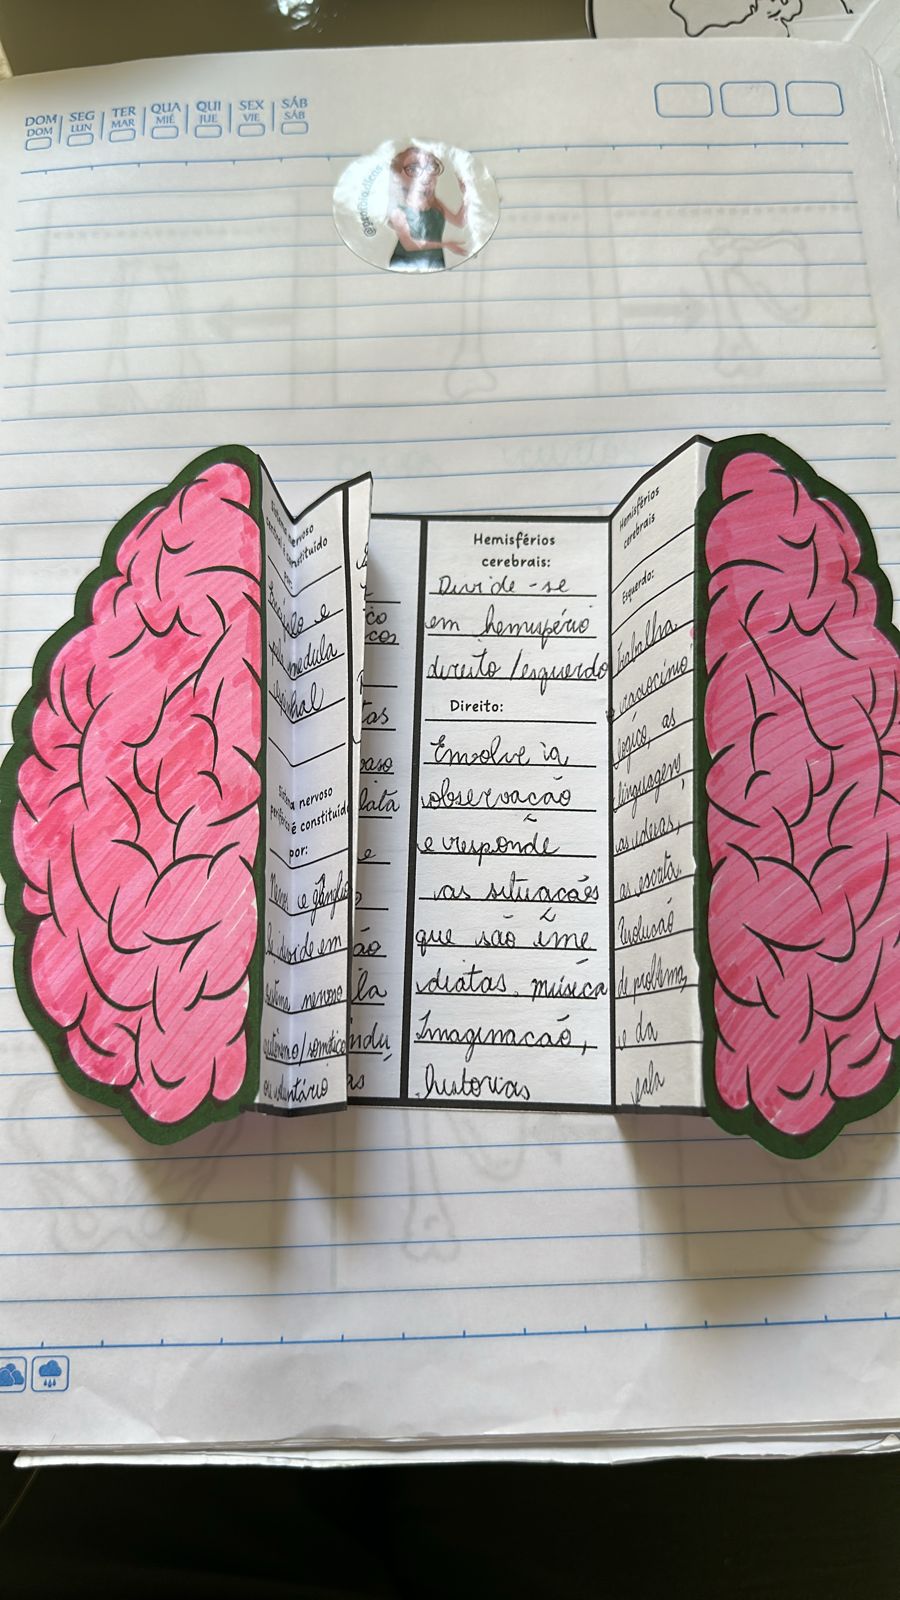 DOM SEG TER QUA QUI SEX SÁB
DOM LUN MAR MIÉ JUE VIE SÁB
Sistema nervoso
central é constituído
por:
e
medula
Sistema nervoso
periférico é constituído
por:
e gânglio
se divide em
sistema nervoso
autônomo/somático
ou voluntário
ico
cos
tas
baso
lata
e
ão
la
indu
as
Hemisférios
cerebrais:
Divide-se
em hemisfério
direito/esquerdo
Direito:
Envolve a
observação
e responde
as situações
que são ime
diatas, música
Imaginação,
historias
Hemisférios
cerebrais
Esquerdo:
Trabalha
raciocínio
lógico, as
linguagens,
as ideias,
as escrita.
Resolucão
de problemas,
e da
fala